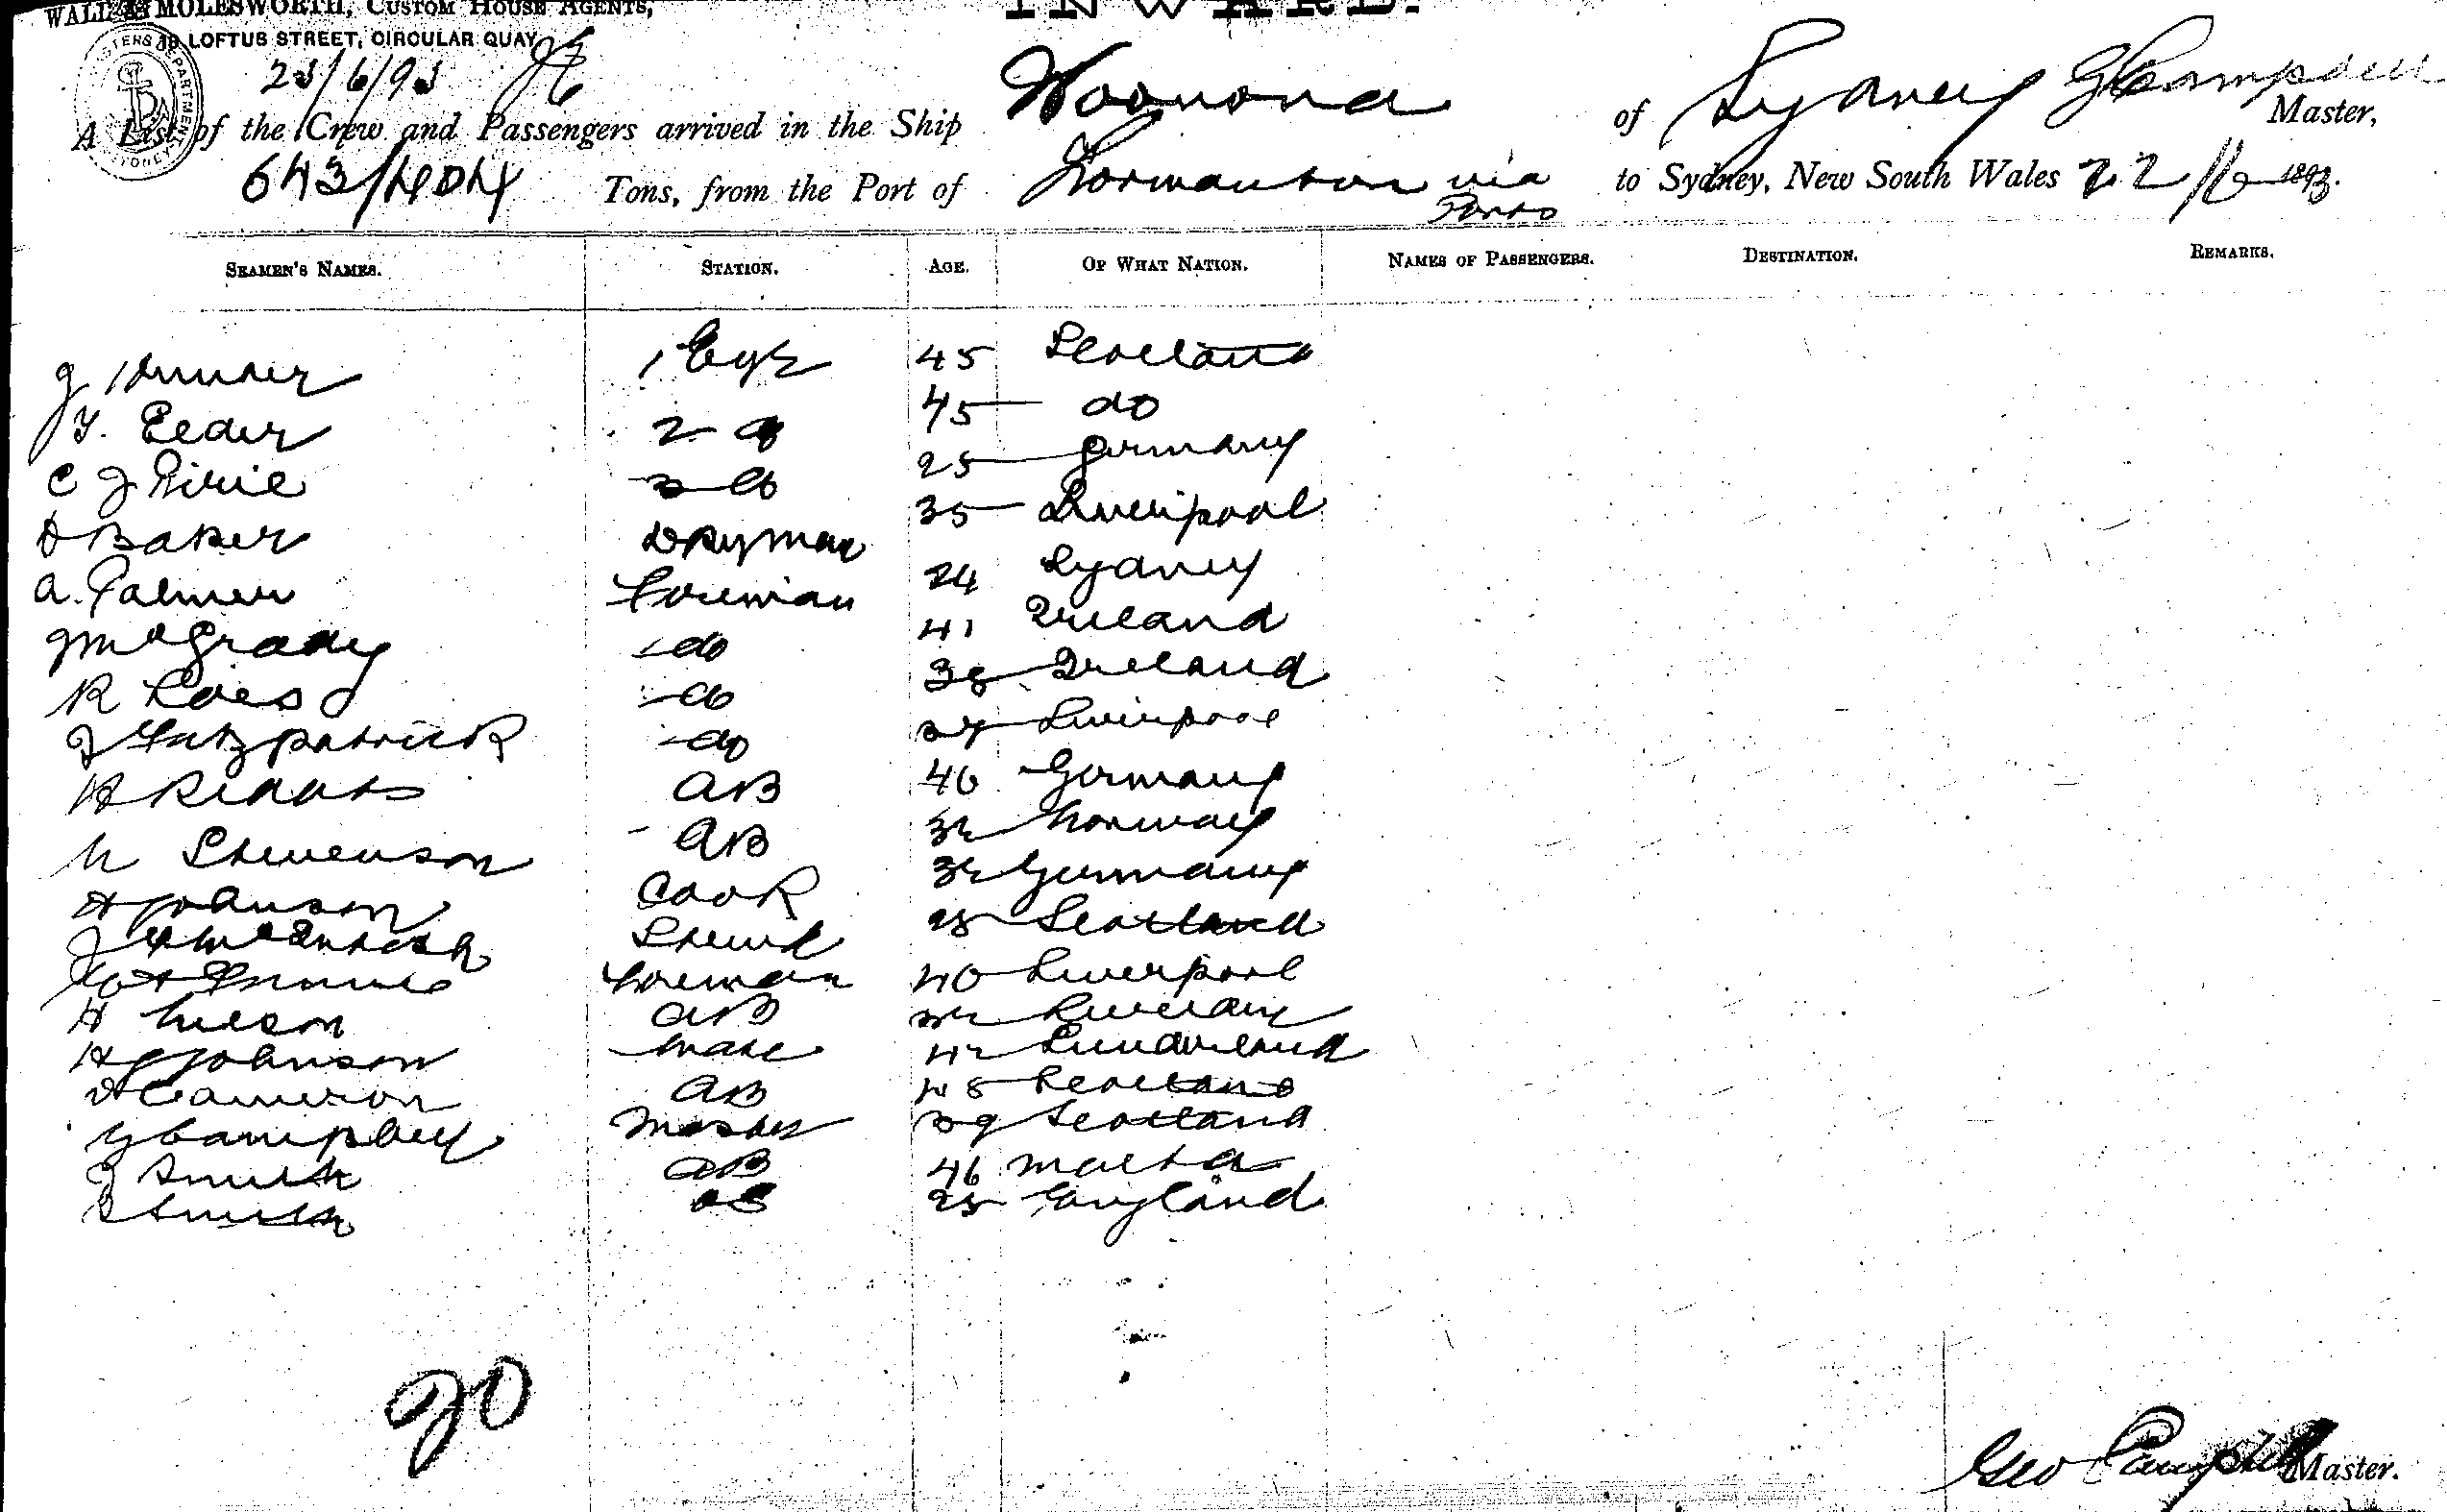 WALL & MOLESWORTH, CUSTOM HOUSE AGENTS,
INWARD.
18 LOFTUS STREET, CIRCULAR QUAY
23/6/93
A List of the Crew and Passengers arrived in the Ship Woonona of Sydney G Campbell Master,
643/ Tons, from the Port of Normanton via Ports to Sydney, New South Wales 22/6 1893.
SEAMEN'S NAMES. STATION. AGE. OF WHAT NATION. NAMES OF PASSENGERS. DESTINATION. REMARKS.
J Hunter 1 Engr 45 Scotland
J. Elder 2 do 45 do
C J Pirie 3 do 25 Germany
D Baker Dkyman 35 Liverpool
A. Palmer Fireman 24 Sydney
J McGrady do 41 Ireland
R do 38 Ireland
J Fitzpatrick do 27 Liverpool
H AB 40 Germany
N Stevenson AB 32 Norway
H Johnson Cook 32 Germany
J McIntosh Steward 28 Scotland
Foreman 40 Liverpool
H Nelson AB
H J Johnson Mate 42 Sunderland
D Cameron AB 48 Scotland
G Campbell Master 39 Scotland
J Smith AB 46 Malta
S Smith OS 25 England
20
Geo Campbell Master.